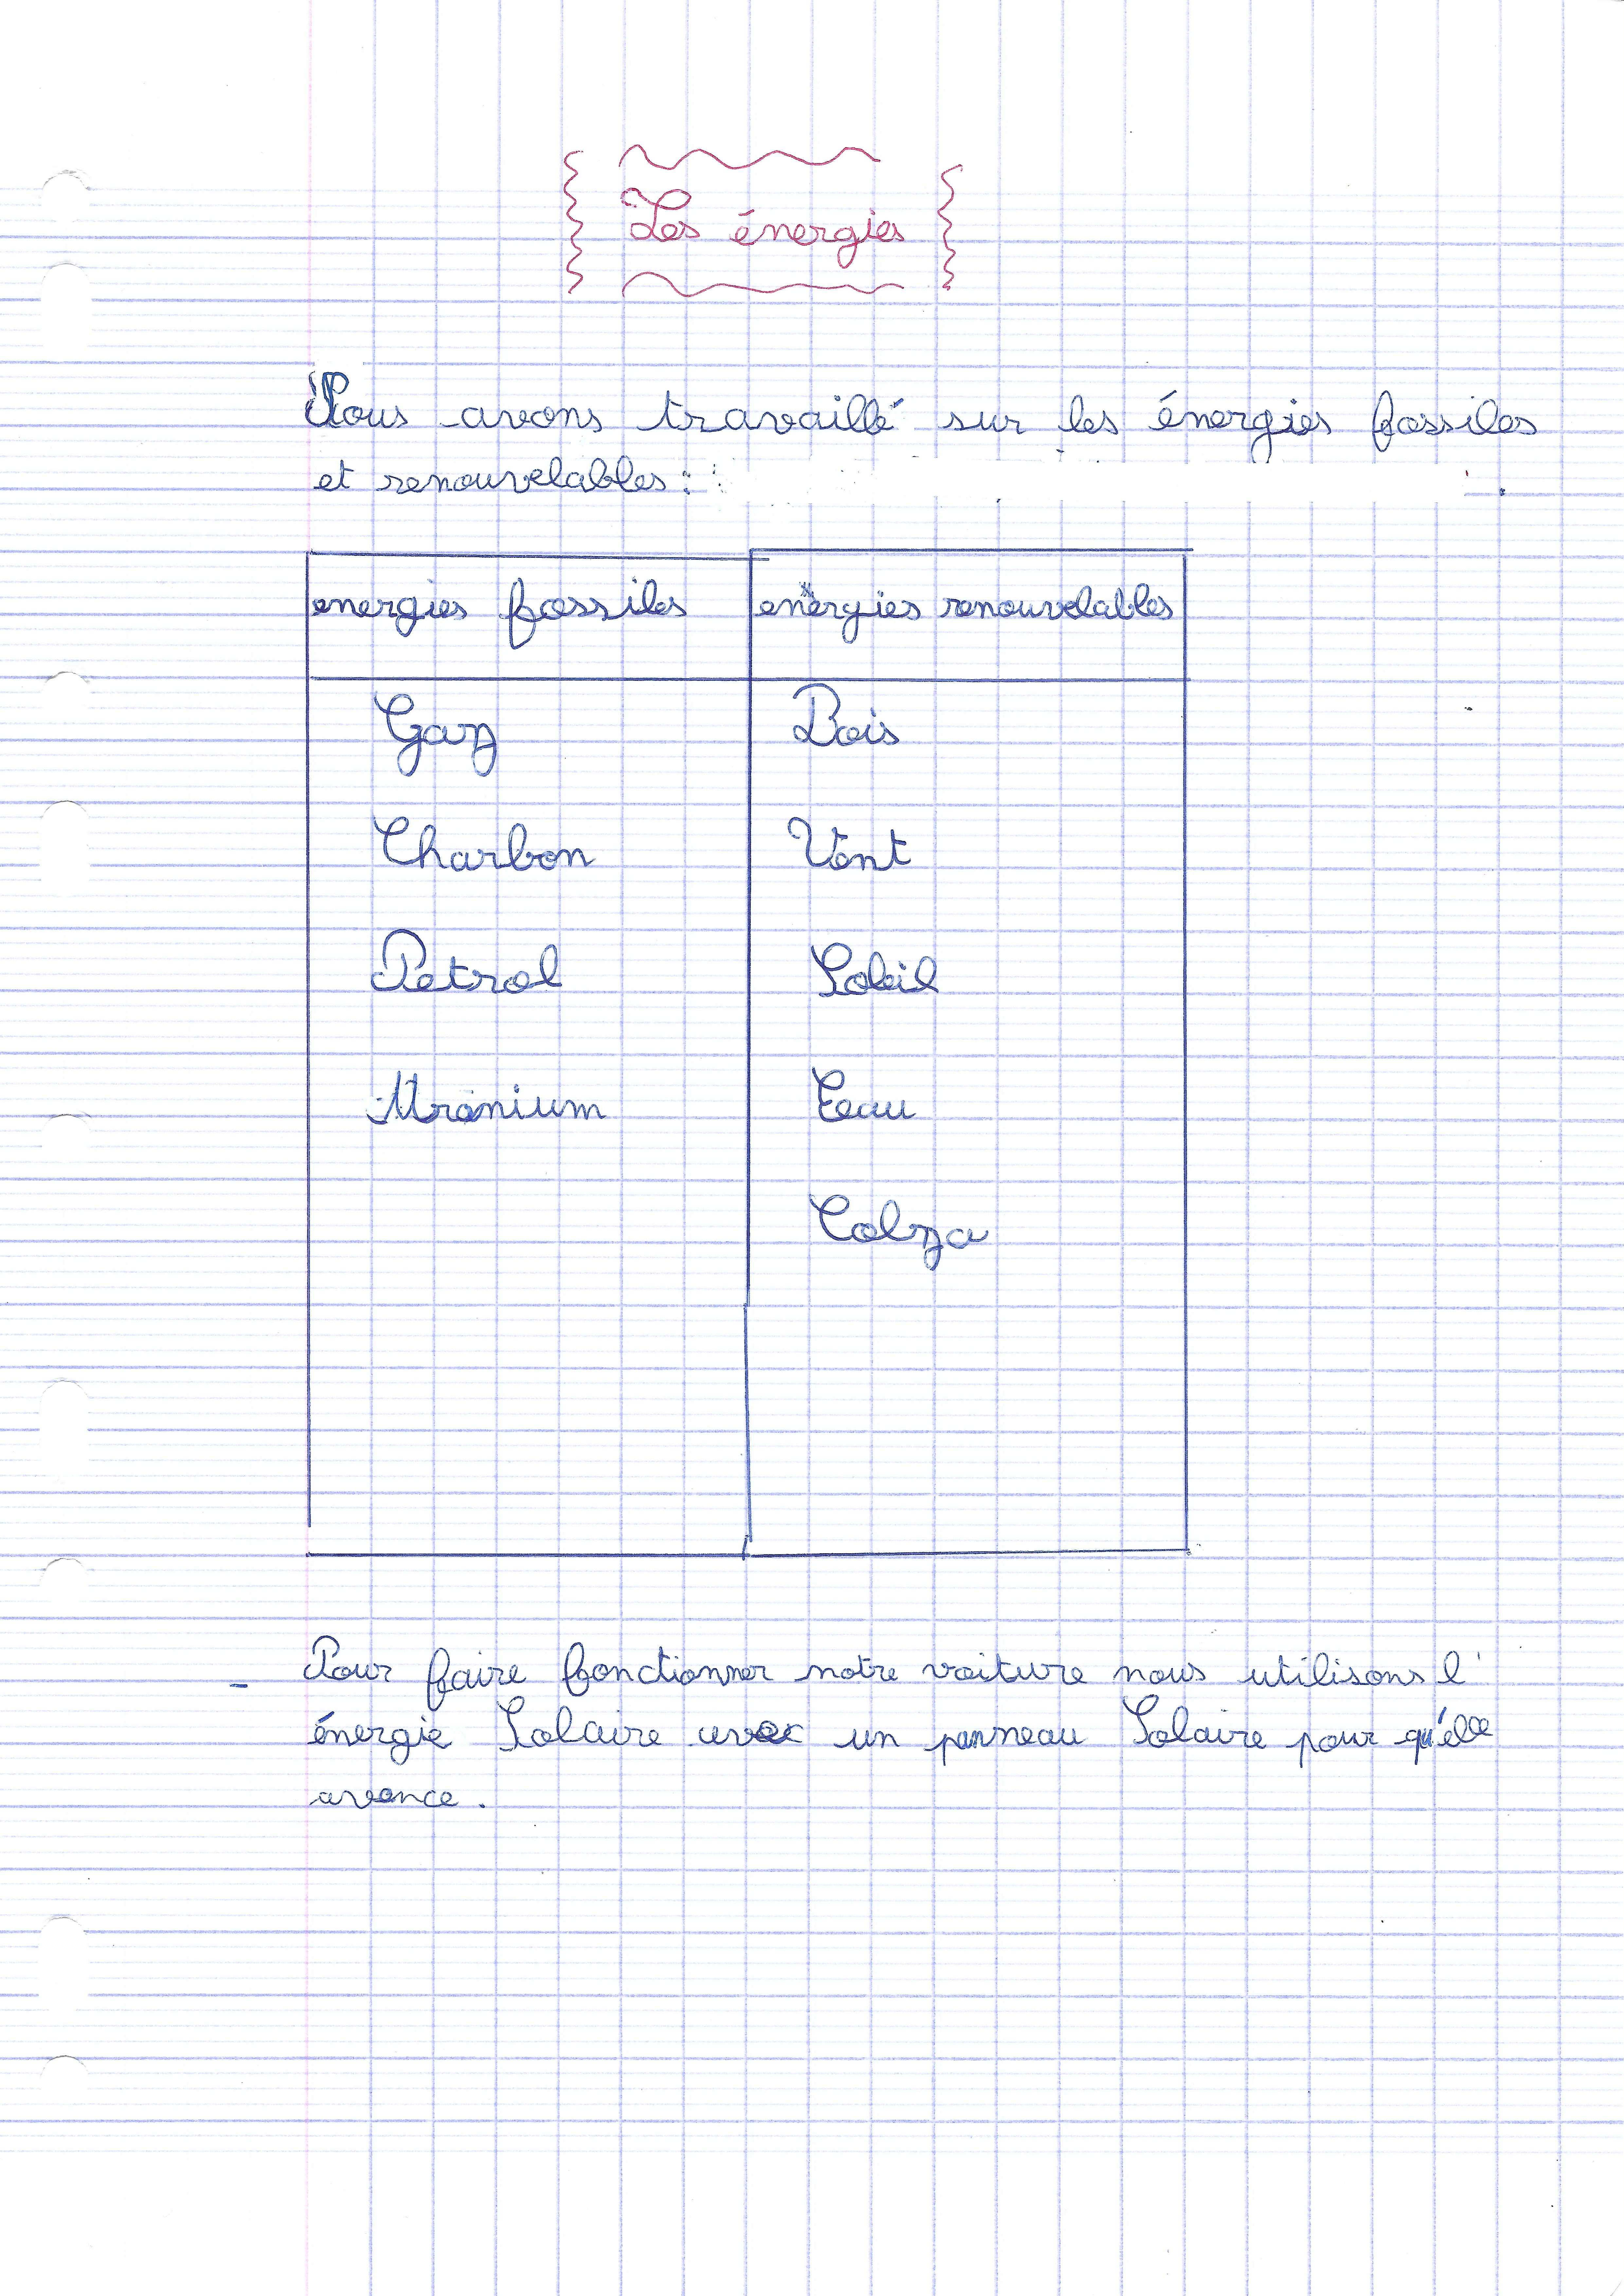 Les énergies
Nous avons travaillé sur les énergies fossiles
et renouvelables :
energies fossiles energies renouvelables
Gaz Bois
Charbon Vent
Petrol Soleil
Uranium Eeau
Colza
- Pour faire fonctionner notre voiture nous utilisons l'
énergie Solaire avec un panneau Solaire pour qu'élle
avance.